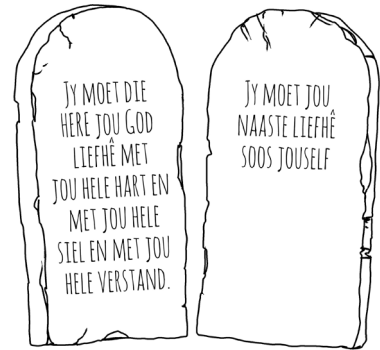 Jy moet die
Here jou God
liefhê met
jou hele hart en
met jou hele
siel en met jou
hele verstand.
Jy moet jou
naaste liefhê
soos jouself